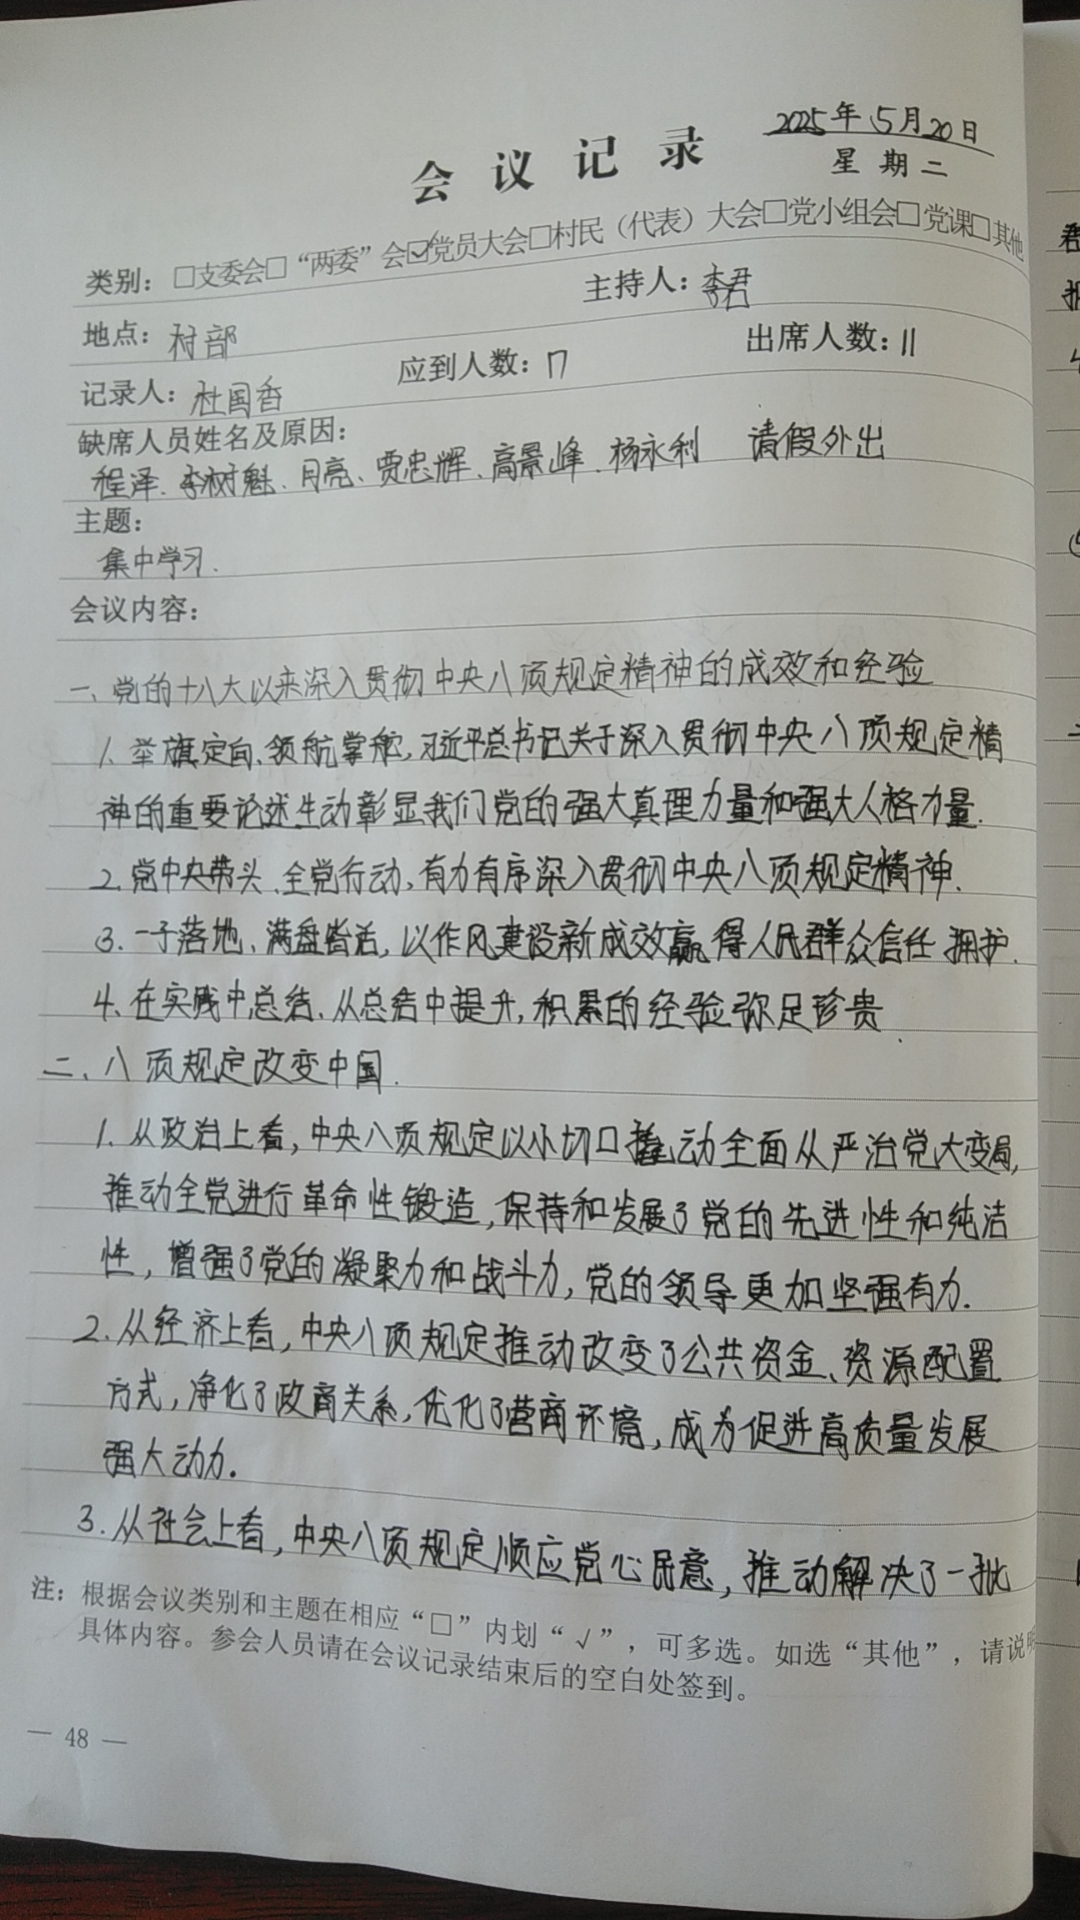 2025年5月20日
会议记录
星期二
类别：□支委会□“两委”会☑党员大会□村民（代表）大会□党小组会□党课□其他
地点：村部 主持人：李君
记录人：杜国香 应到人数：17 出席人数：11
缺席人员姓名及原因：
程泽、李树魁、月亮、贾忠辉、高景峰、杨永利 请假外出
主题：
集中学习.
会议内容：
一、党的十八大以来深入贯彻中央八项规定精神的成效和经验
1、举旗定向、领航掌舵，习近平总书记关于深入贯彻中央八项规定精
神的重要论述生动彰显我们党的强大真理力量和强大人格力量.
2、党中央带头、全党行动，有力有序深入贯彻中央八项规定精神.
3、一子落地、满盘皆活，以作风建设新成效赢得人民群众信任拥护.
4、在实践中总结、从总结中提升，积累的经验弥足珍贵.
二、八项规定改变中国.
1、从政治上看，中央八项规定以小切口撬动全面从严治党大变局，
推动全党进行革命性锻造，保持和发展了党的先进性和纯洁
性，增强了党的凝聚力和战斗力，党的领导更加坚强有力.
2、从经济上看，中央八项规定推动改变了公共资金、资源配置
方式，净化了政商关系，优化了营商环境，成为促进高质量发展
强大动力.
3、从社会上看，中央八项规定顺应党心民意，推动解决了一批
注：根据会议类别和主题在相应“□”内划“√”，可多选。如选“其他”，请说明
具体内容。参会人员请在会议记录结束后的空白处签到。
— 48 —